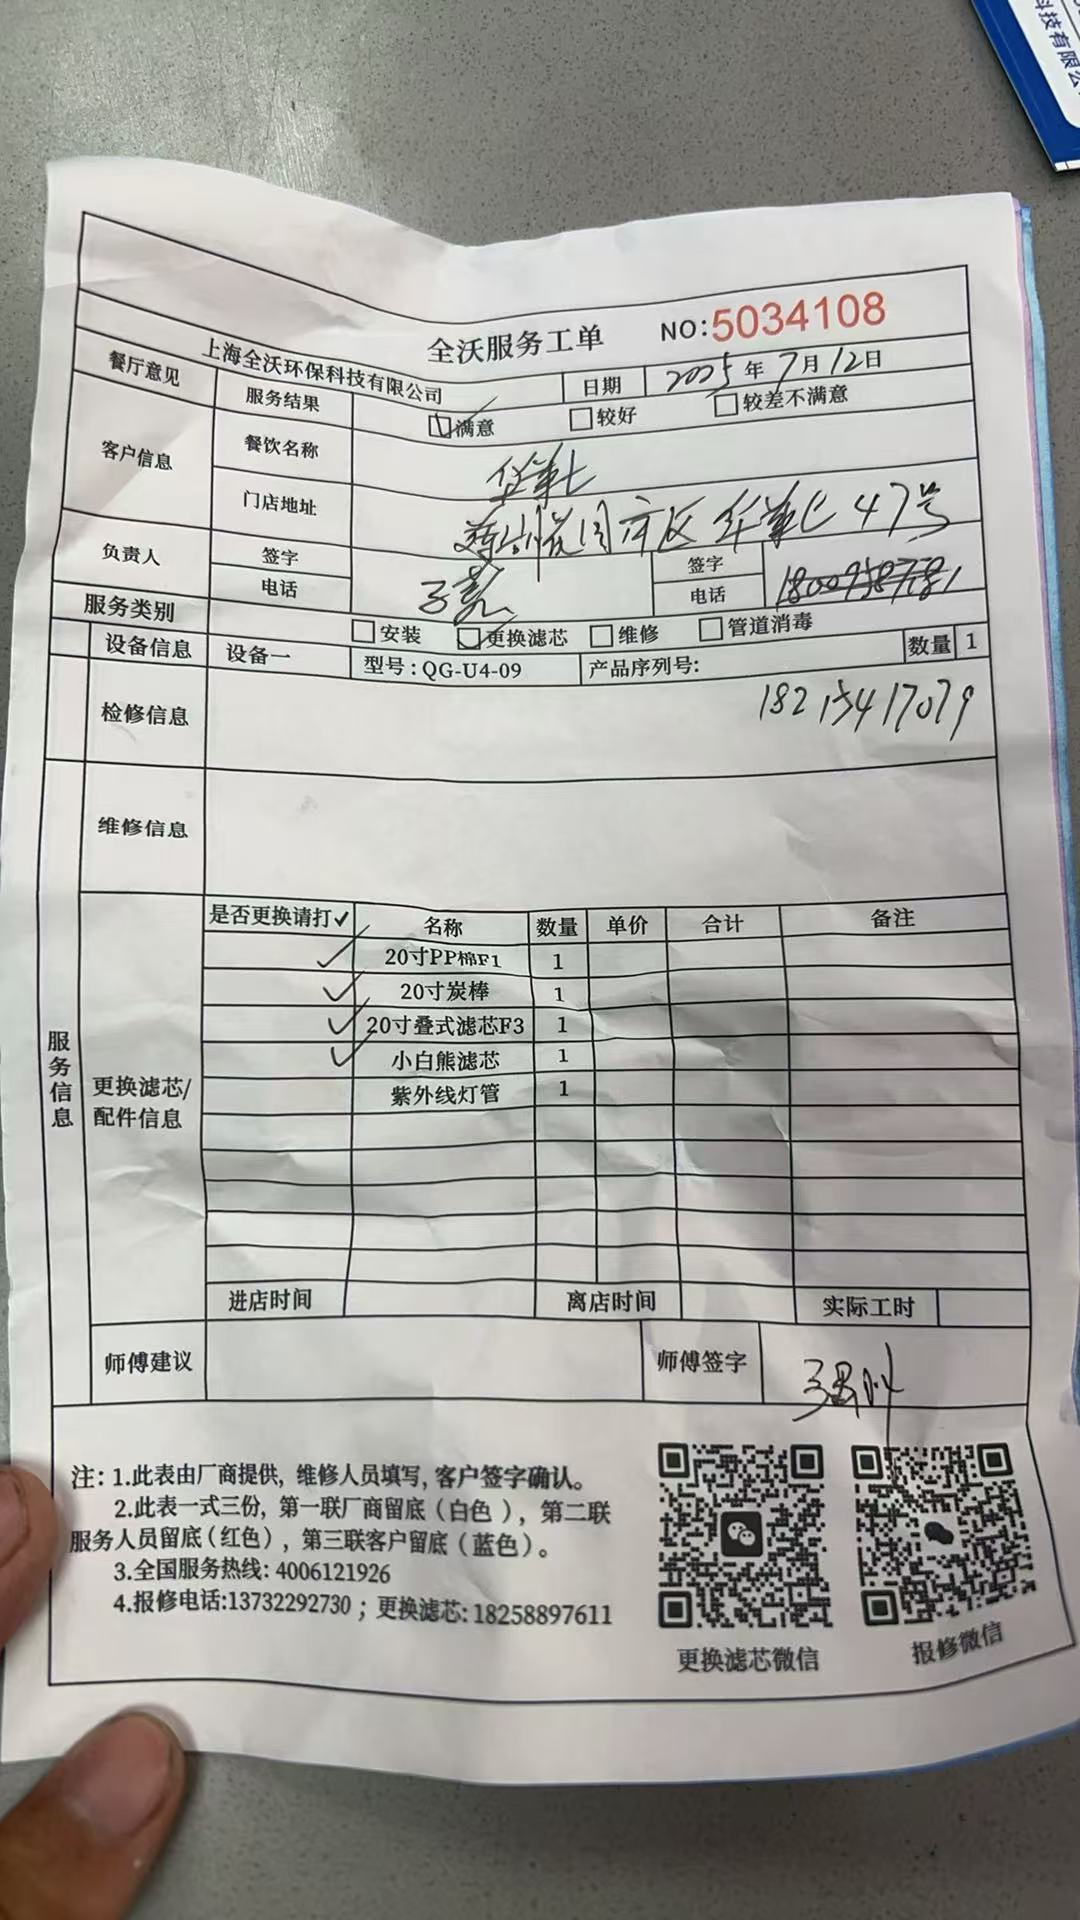 科技有限公
全沃服务工单 NO:5034108
上海全沃环保科技有限公司 日期 2025年7月12日
餐厅意见 服务结果 满意 较好 较差不满意
客户信息 餐饮名称 华莱士
门店地址 华莱士47号
负责人 签字 签字
电话 电话
服务类别 安装 更换滤芯 维修 管道消毒
设备信息 设备一 型号:QG-U4-09 产品序列号: 数量 1
检修信息 18213417079
维修信息
服务信息
更换滤芯/配件信息
是否更换请打✓ 名称 数量 单价 合计 备注
✓ 20寸PP棉F1 1
✓ 20寸炭棒 1
✓ 20寸叠式滤芯F3 1
✓ 小白熊滤芯 1
紫外线灯管 1
进店时间 离店时间 实际工时
师傅建议 师傅签字
注: 1.此表由厂商提供, 维修人员填写, 客户签字确认。
2.此表一式三份, 第一联厂商留底(白色), 第二联
服务人员留底(红色), 第三联客户留底(蓝色)。
3.全国服务热线: 4006121926
4.报修电话:13732292730 ; 更换滤芯: 18258897611
更换滤芯微信 报修微信